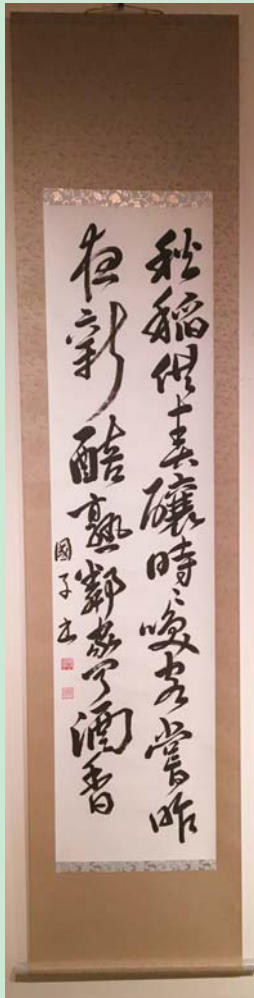 秋稻供春釀時〻喚客嘗昨
夜新醅熟鄰家聞酒香
國子書